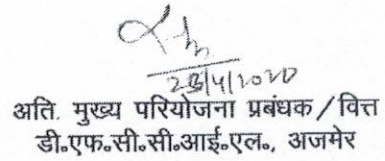 अति. मुख्य परियोजना प्रबंधक/वित्त
डी॰एफ॰सी॰सी॰आई॰एल॰, अजमेर